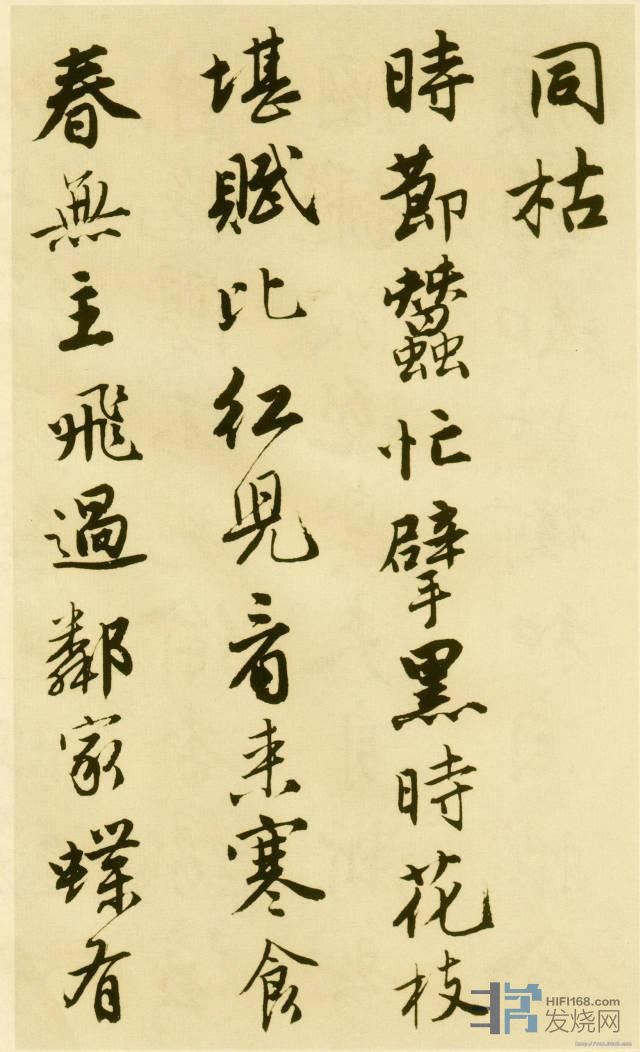 同枯
時節蠶忙擘黑時花枝
堪賦比紅兒看来寒食
春無主飛過鄰家蝶有
HIFI168.com
发烧网